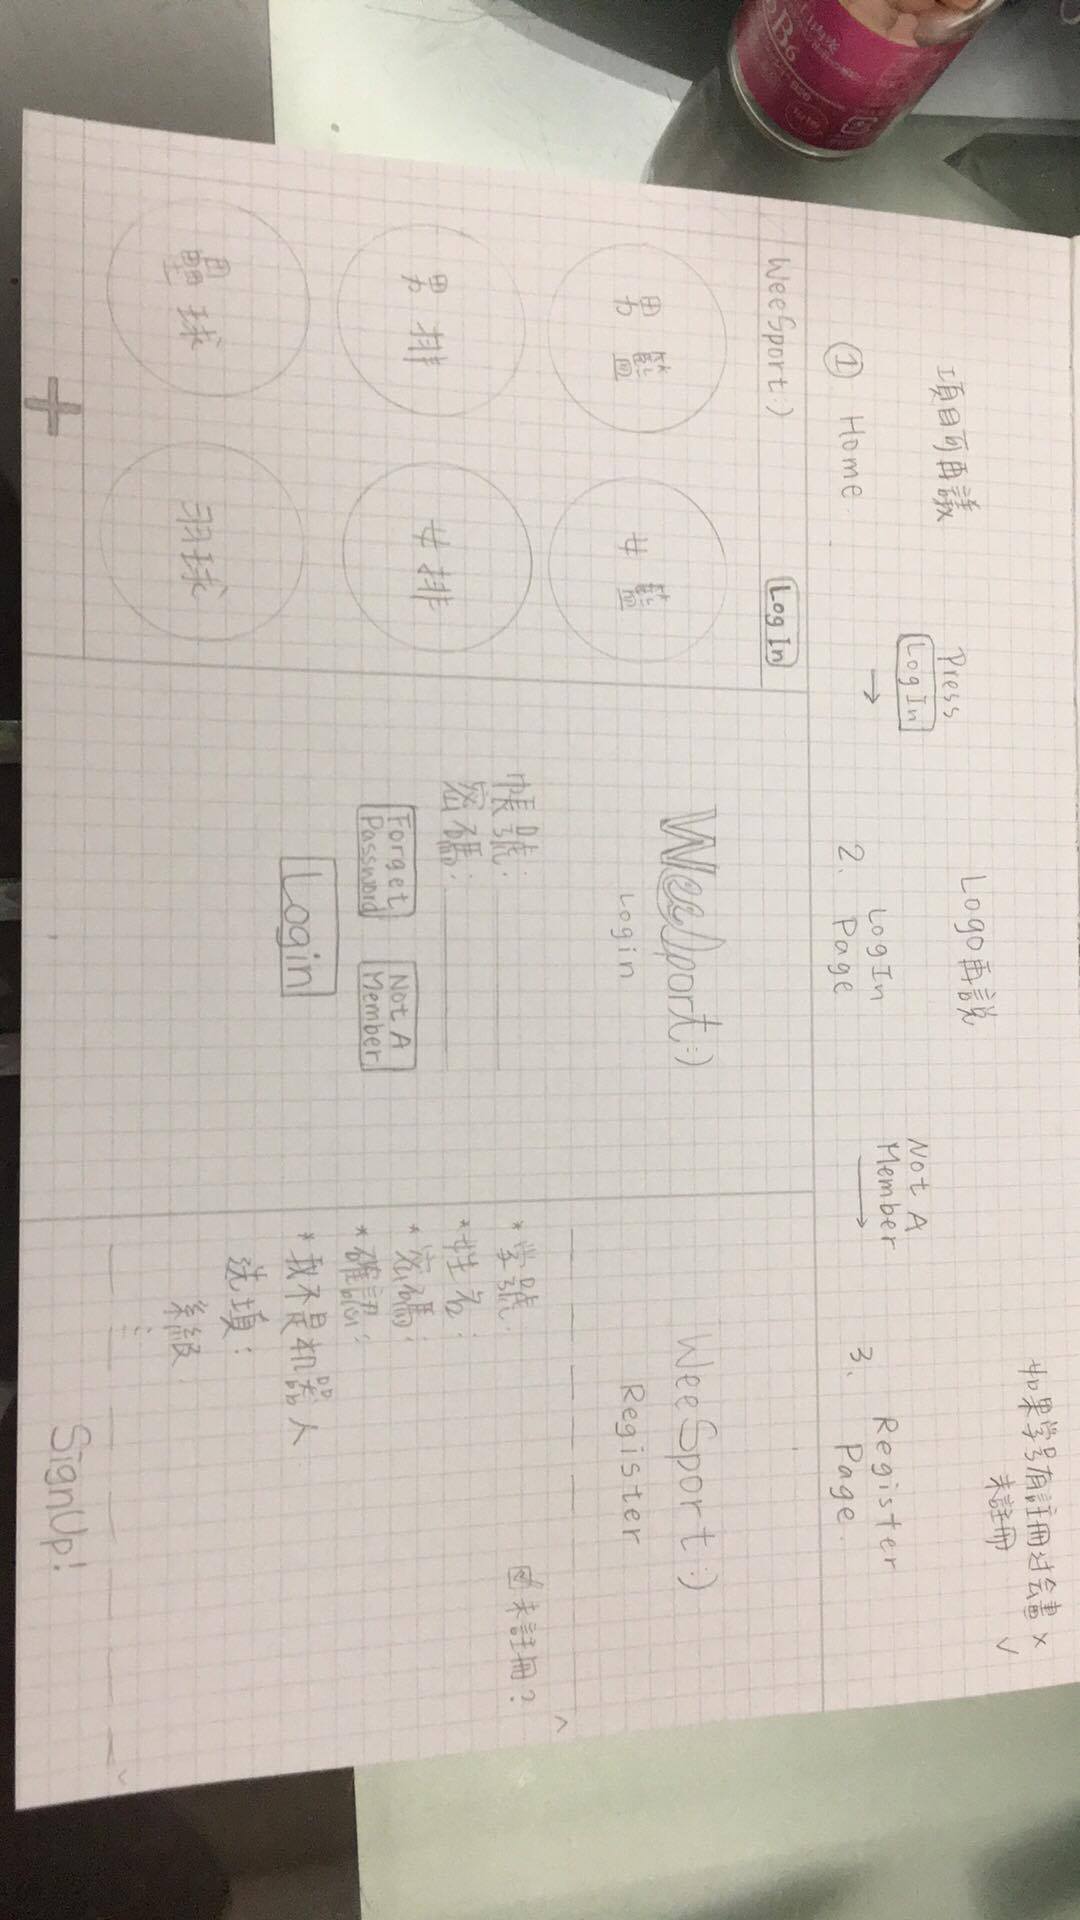 如果学号有註冊过会畫 ×
未註冊 ✓
項目可再議
Press
Log In
→
Logo再說
Not A
Member
→
① Home
2. LogIn
Page
3. Register
Page.
WeeSport:)
Log In
男籃
女籃
男排
女排
壘球
羽球
+
WeeSport:)
Login
帳號:
密碼:
Forget
Password
Not A
Member
Login
WeeSport:)
Register
*学號:
☑未註冊?
*姓名:
*密碼:
*確認:
*我不是机器人
选填:
系級
⋮
SignUp!
B6